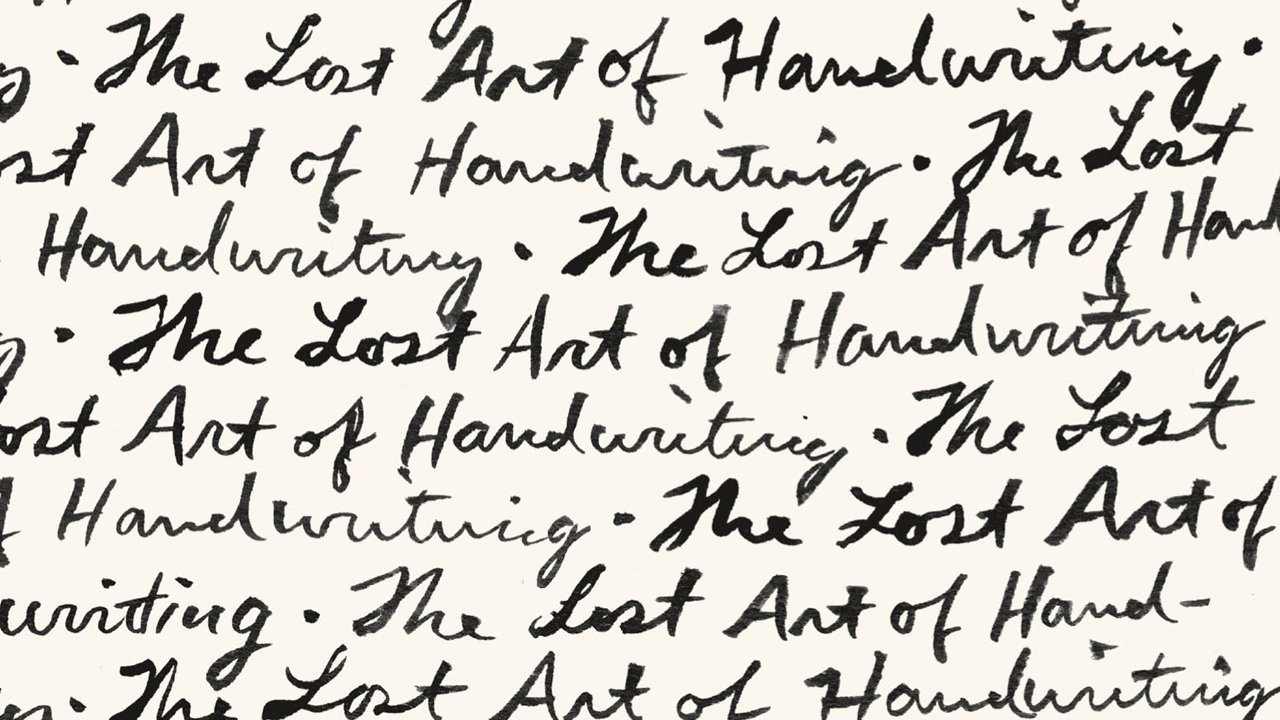 g · The Lost Art of Handwriting ·
ost Art of Handwriting · The Lost
Handwriting · The Lost Art of Hand
g · The Lost Art of Handwriting
ost Art of Handwriting · The Lost
f Handwriting · The Lost Art of
writing · The Lost Art of Hand-
g · The Lost Art of Handwriting